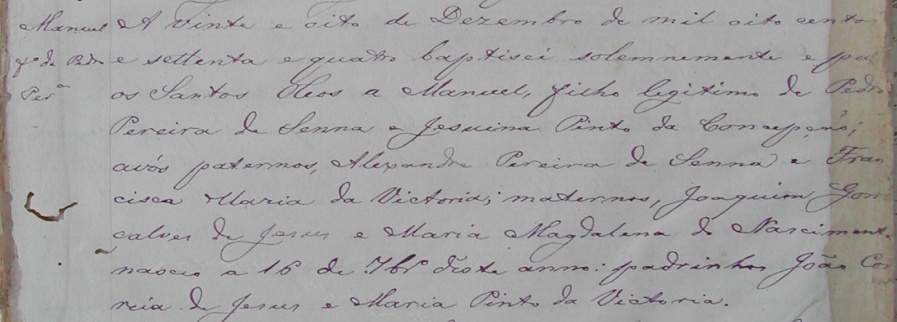 Manuel
fº de Pedro
Perª
A Vinte e Oito de Dezembro de mil oito centos
e settenta e quatro baptisei solemnemente e puz
os Santos Oleos a Manuel, filho legitimo de Pedro
Pereira de Senna e Jesuina Pinto da Concepção;
avós paternos, Alexandre Pereira de Senna e Fran
cisca Maria da Victoria; maternos, Joaquim Gon
calves de Jesus e Maria Magdalena do Nascimento
nasceo a 16 de 7bro deste anno: padrinhos João Cor
reia de Jesus e Maria Pinto da Victoria.